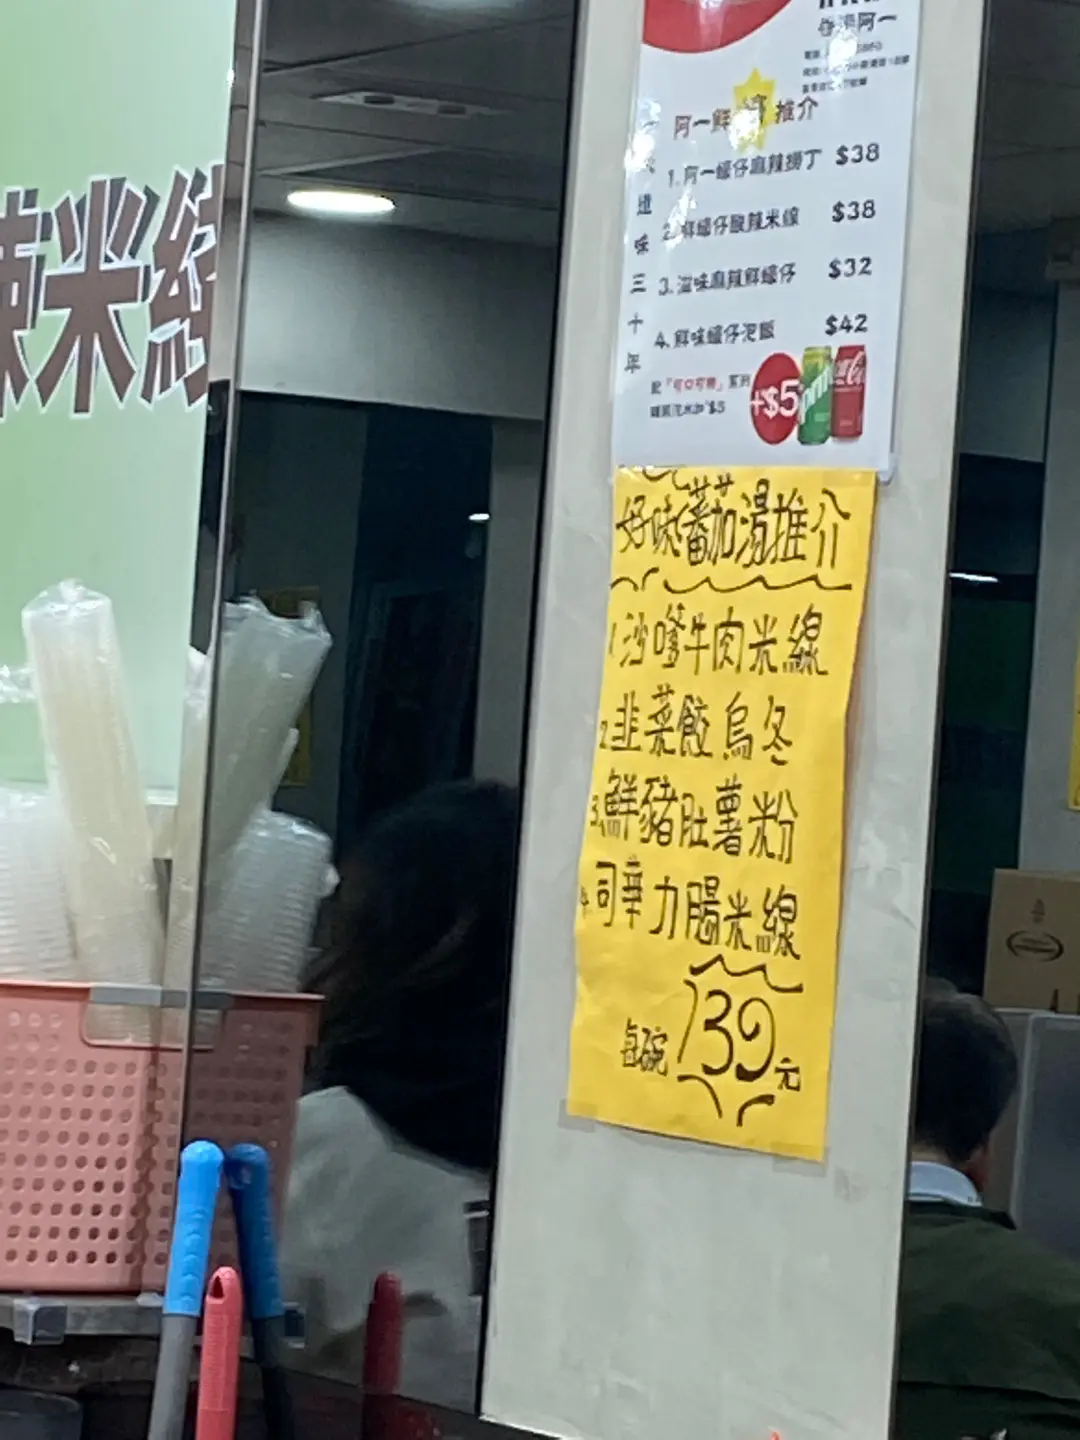 辣米線
香港阿一
阿一鮮蠔推介
1. 阿一蠔仔麻辣撈丁 $38
2. 鮮蠔仔酸辣米線 $38
3. 滋味麻辣鮮蠔仔 $32
4. 鮮味蠔仔泡飯 $42
道味三十年
配「可口可樂」系列
罐裝汽水加$5
+$5
Sprite
好味蕃茄湯推介
1 沙嗲牛肉米線
2 韭菜餃烏冬
3. 鮮豬肚薯粉
4. 司華力腸米線
每碗 39元